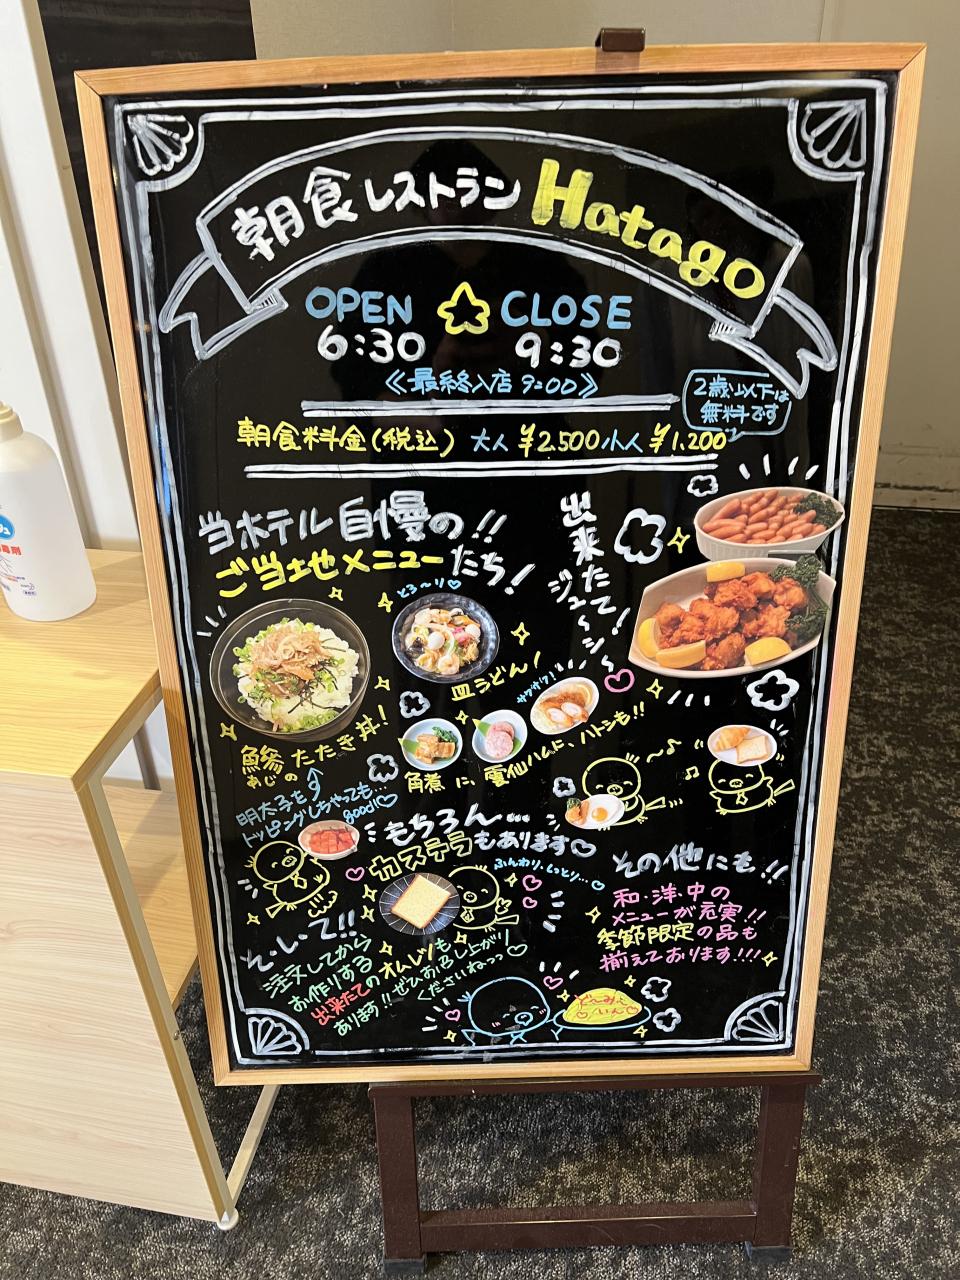 朝食レストラン Hatago
OPEN ☆ CLOSE
6:30 9:30
《最終入店 9:00》
2歳以下は
無料です
朝食料金(税込) 大人 ¥2.500 小人 ¥1.200
当ホテル自慢の!!
ご当地メニューたち!
出来たて!
ジューシ〜
とろ〜り♡
皿うどん!
サクサク!
鯵のたたき丼!
あじ
角煮 に、雲仙ハムに、ハトシも!!
明太子を
トッピングしちゃっても…
good!♡
もちろん…
カステラもあります♡
ふんわり、しっとり…♡
そして!!
注文してから
お作りする
出来たてのオムレツも
あります!! ぜひ、お召し上がり
くださいねっっ♡
その他にも!!
和・洋・中の
メニューが充実!!
季節限定の品も
揃えております!!!
どーみー
いん♡